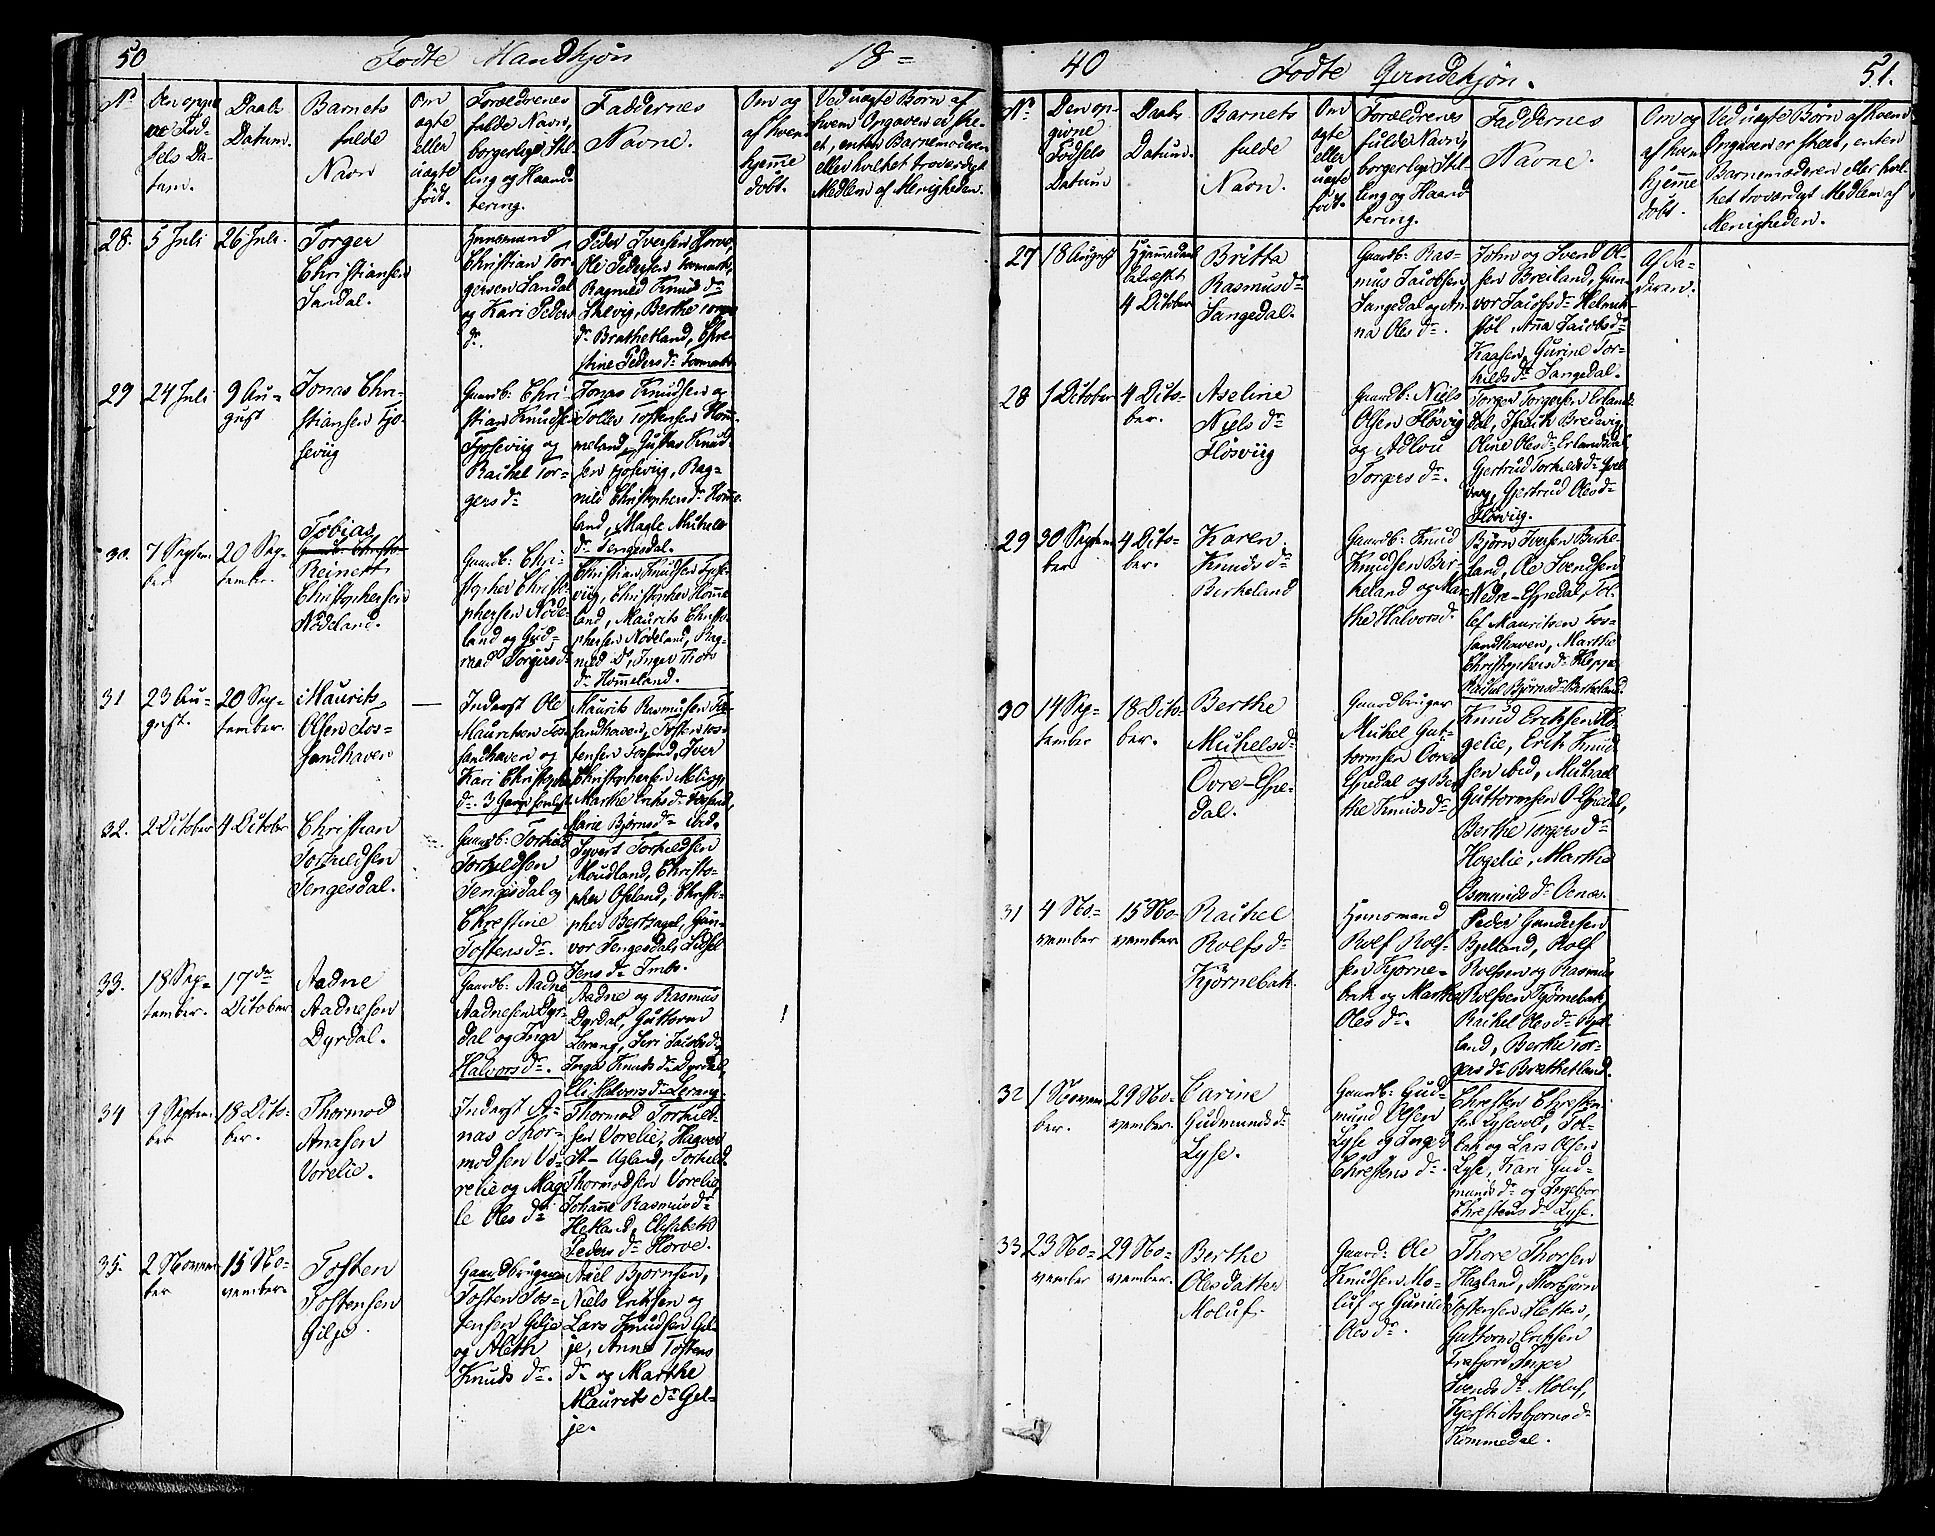 50 Fødte Mandkjøn 18=
No
Den opgiv-
ne Fød-
sels Da-
tum.
Daabs
Datum.
Barnets
fulde
Navn
Om
ægte
eller
uægte
født.
Forældrenes
fulde Navn,
borgerlige Stil-
ling og Haand-
tering.
Faddernes
Navne.
Om og
af hvem
hjemme
døbt.
Ved uægte Børn af
hvem Opgaven er ske-
et, enten Barnemoderen
eller hvilket troværdigt
Medlem af Menigheden.
28.
5 Juli
26 Juli.
Torger
Christiansen
Sandal.
Huusmand
Christian Tor-
gersen Sandal
og Kari Peders
dr.
Peder Iversen Horve,
Ole Pedersen
Ragnild Knuds dr
Berthe Torgers
dr Brathetland, Chre-
stine Peders dr
29
24 Juli
9 Au-
gust
Jonas Chri-
stiansen Fjo-
seviig
Gaardb: Chri-
stian Knudsen
Fjoseviig og
Rachel Tor-
gers dr
Jonas Knudsen og
Tollev Tostensen Hom-
meland, Gustav Knud-
sen Fjoseviig, Rag-
nild Christophers dr Homme-
land, Magle Michels
dr Tengesdal.
30.
7 Septem-
ber
20 Sep-
tember.
Tobias
Reinert
Christophersen
Nödeland.
Gaardb: Chri-
stopher Christo-
phersen Nöde-
land og Gud-
Torgers dr
Christian Knudsen Fjose-
viig, Christopher Homme-
land, Maurits Christo-
phersen Nödeland, Rag-
nild Do, Inger Thors
dr Homeland.
31
23 Au-
gust.
20 Sep-
tember.
Maurits
Olsen Fos-
sandhaven
—
Inderst Ole
Mauritsen Fos-
sandhaven og
Kari Christophers
dr. 3 Gange
Maurits Rasmussen Fos-
sandhaven, Tosten Tos-
tensen Fossand, Iver
Christophersen
Marthe Eriks dr Fossand,
Marie Bjørns dr ibid.
32.
2 October
4 October
Christian
Torkildsen
Tengesdal.
Gaardb: Torkild
Torkildsen
Tengesdal og
Christine
Tostens dr.
Syvert Torkildsen
Moudland, Christo-
pher Ofeland, Christo-
pher Gun-
vor Tengesdal, Sidsel
Jens dr Imbs.
33.
18 Sep-
tember.
17de
October
Aadne
Aadnesen
Dyrdal.
Gaardb: Aadne
Aadnesen Dyr-
dal og Inga
Halvors dr.
Aadne og Rasmus
Dyrdal, Guttorm
Lerang, Siri Jacobs dr,
Inger Knuds dr Dyrdal,
Eli Halvors dr Lerang.
34
9 Septem-
ber
18 Octo-
ber.
Thormod
Anasen
Vorelie.
Inderst A-
nas Thor-
modsen Vo-
relie og Mag-
le Oles dr
Thormod Torkild-
sen Vorelie, Haaver
St— Ugland, Torkild
Thormodsen Vorelie,
Johanne Rasmus dr
Hetland, Elisabeth
Peders dr Horve.
35.
2 Novem-
ber
15 No-
vember.
Tosten
Tostensen
Gilje
Gaardbruger
Tosten Tos-
tensen Gilje
og Aleth
Knuds dr.
Axel Bjørnsen,
Niels Eriksen og
Lars Knudsen Gil-
je, Anne Tostens
dr og Marthe
Maurits dr Gil-
je.
40 Fødte Qvindekjøn. 51.
No
Den op-
givne
Fødsels
Datum
Daabs
Datum.
Barnets
fulde
Navn.
Om
ægte
eller
uægte
født.
Forældrenes
fulde Navn,
borgerlige Stil-
ling og Haand-
tering.
Faddernes
Navne.
Om og
af hvem
hjemme
døbt.
Ved uægte Børn af hvem
Opgaven er skeet, enten
Barnemoderen eller hvil-
ket troværdigt Medlem af
Menigheden.
27
18 August
Hjemmedaab
4 October
Britta
Rasmus dr
Sangedal.
Gaardb: Ras-
mus Jacobsen
Sangedal og An-
na Oles dr.
John og Svend Ol-
sen Breiland, Gun-
vor Jacobs dr Helmik-
stöl, Anna Jacobs dr
Kaasen, Gurine Tor-
kilds dr Sangedal.
28
1 October
4 Octo-
ber.
Aseline
Niels dr
Flösviig
Gaardb: Niels
Olsen Flösviig
og Adlou
Torgers dr.
Torger Torgersen Erlands-
dal, Bredevig,
Oline Oles dr Erlandsdal
Gertrud Torkilds dr
Gjertrud Oles dr
Flösviig.
29
30 Septem-
ber
4 Octo-
ber.
Karen
Knuds dr
Berkeland
Gaardb: Knud
Knudsen Ber-
keland og Mar-
the Halvorsd.
Bjørn Iversen Berke-
land, Ole Svendsen
Nedre-Espedal, Tol-
lef Mauritsen Fos-
sandhaven, Marthe
Christophers dr
Rachel Bjørns dr Berkeland.
30
14 Sep-
tember
18 Octo-
ber.
Berthe
Michels dr
Ovre-Espe-
dal.
Gaardbruger
Michel Gut-
tormsen Ovre
Espedal og Ber-
the Knuds dr
Knud Eriksen Ho-
gelie, Erik Knud-
sen ibid, Michael
Guttormsen O-Espedal,
Berthe Torgers dr
Hogelie, Marthe
Osmunds dr
31
4 No-
vember
15 No-
vember.
Rachel
Rolfs dr
Kjörnebek.
Huusmand
Rolf Rolf-
sen Kjörne-
bek og Marthe
Oles dr.
Peder Gundersen
Bjelland, Rolf
Rolfsen og Rasmus
Rolfsen Kjörnebek,
Rachel Oles dr Bjel-
land, Berthe Tor-
gers dr Brathetland.
32
1 Novem-
ber.
29 No-
vember.
Carine
Gudmunds dr
Lyse.
Gaardb: Gud-
mund Olsen
Lyse og Inger
Chrestens dr.
Chresten Chresten-
sen Lysevold, Tol-
lak og Lars Olsen
Lyse, Kari Gud-
munds dr og Ingebor
Chrestens dr Lyse.
33
23 No-
vember
29 No-
vember.
Berthe
Olesdatter
Moluf.
Gaardb: Ole
Knudsen Mo-
luf og Gunild
Oles dr.
Thore Thorsen
Hagland, Thorbjørn
Tostensen
Guttorm Eriksen
Frafjord, Inger
Svends dr Moluf,
Kjersti Asbjørns dr
Kommedal.